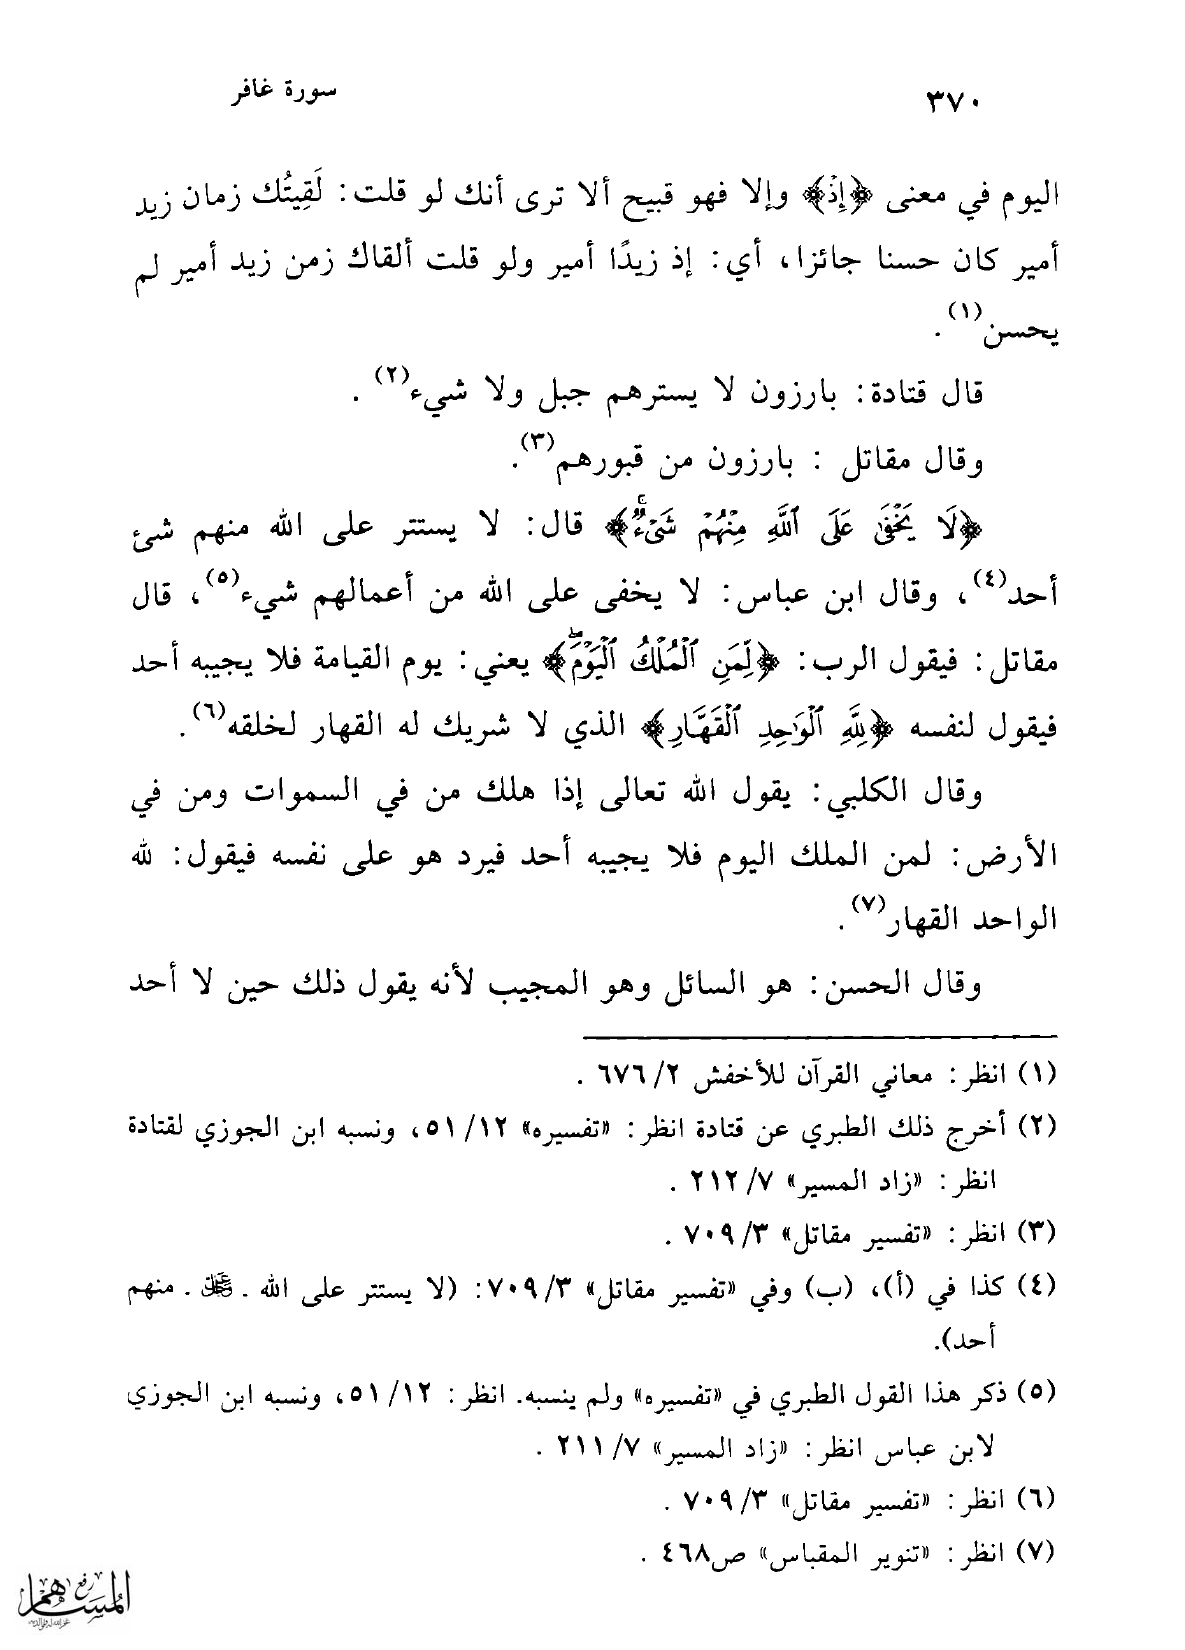 ٣٧٠
سورة غافر
اليوم في معنى ﴿إِذْ﴾ وإلا فهو قبيح ألا ترى أنك لو قلت: لَقِيتُك زمان زيد
أمير كان حسنا جائزا، أي: إذ زيدًا أمير ولو قلت ألقاك زمن زيد أمير لم
يحسن(١).
قال قتادة: بارزون لا يسترهم جبل ولا شيء(٢).
وقال مقاتل : بارزون من قبورهم(٣).
﴿لَا يَخْفَىٰ عَلَى ٱللَّهِ مِنْهُمْ شَىْءٌۚ﴾ قال: لا يستتر على الله منهم شئ
أحد(٤)، وقال ابن عباس: لا يخفى على الله من أعمالهم شيء(٥)، قال
مقاتل: فيقول الرب: ﴿لِّمَنِ ٱلْمُلْكُ ٱلْيَوْمَۖ﴾ يعني: يوم القيامة فلا يجيبه أحد
فيقول لنفسه ﴿لِلَّهِ ٱلْوَٰحِدِ ٱلْقَهَّارِ﴾ الذي لا شريك له القهار لخلقه(٦).
وقال الكلبي: يقول الله تعالى إذا هلك من في السموات ومن في
الأرض: لمن الملك اليوم فلا يجيبه أحد فيرد هو على نفسه فيقول: لله
الواحد القهار(٧).
وقال الحسن: هو السائل وهو المجيب لأنه يقول ذلك حين لا أحد
(١) انظر: معاني القرآن للأخفش ٢/ ٦٧٦ .
(٢) أخرج ذلك الطبري عن قتادة انظر: «تفسيره» ١٢/ ٥١، ونسبه ابن الجوزي لقتادة
انظر: «زاد المسير» ٧/ ٢١٢ .
(٣) انظر: «تفسير مقاتل» ٣/ ٧٠٩ .
(٤) كذا في (أ)، (ب) وفي «تفسير مقاتل» ٣/ ٧٠٩: (لا يستتر على الله . ﷻ . منهم
أحد).
(٥) ذكر هذا القول الطبري في «تفسيره» ولم ينسبه. انظر: ١٢/ ٥١، ونسبه ابن الجوزي
لابن عباس انظر: «زاد المسير» ٧/ ٢١١ .
(٦) انظر: «تفسير مقاتل» ٣/ ٧٠٩ .
(٧) انظر: «تنوير المقباس» ص٤٦٨ .
رفع
المساهم